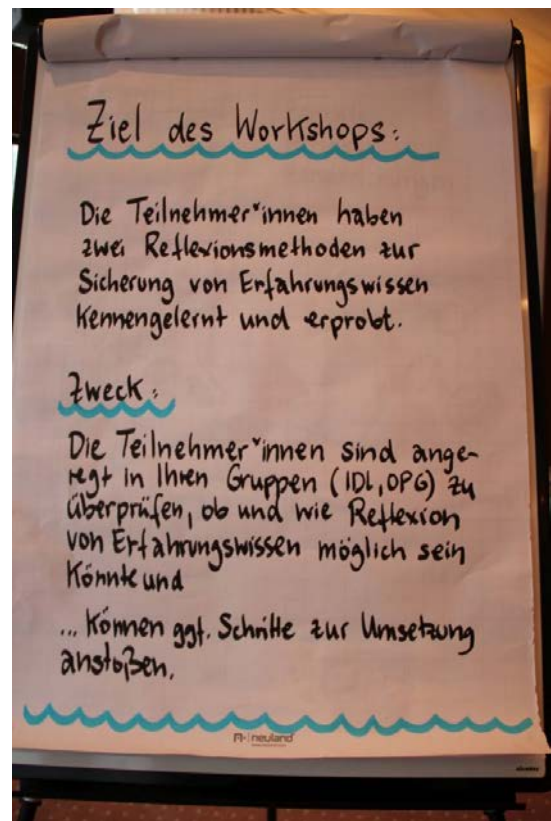 Ziel des Workshops:
Die Teilnehmer*innen haben
zwei Reflexionsmethoden zur
Sicherung von Erfahrungswissen
Kennengelernt und erprobt.
Zweck:
Die Teilnehmer*innen sind ange-
regt in Ihren Gruppen (IDL, OPG) zu
überprüfen, ob und wie Reflexion
von Erfahrungswissen möglich sein
Könnte und
... Können ggf. Schritte zur Umsetzung
anstoßen.
neuland